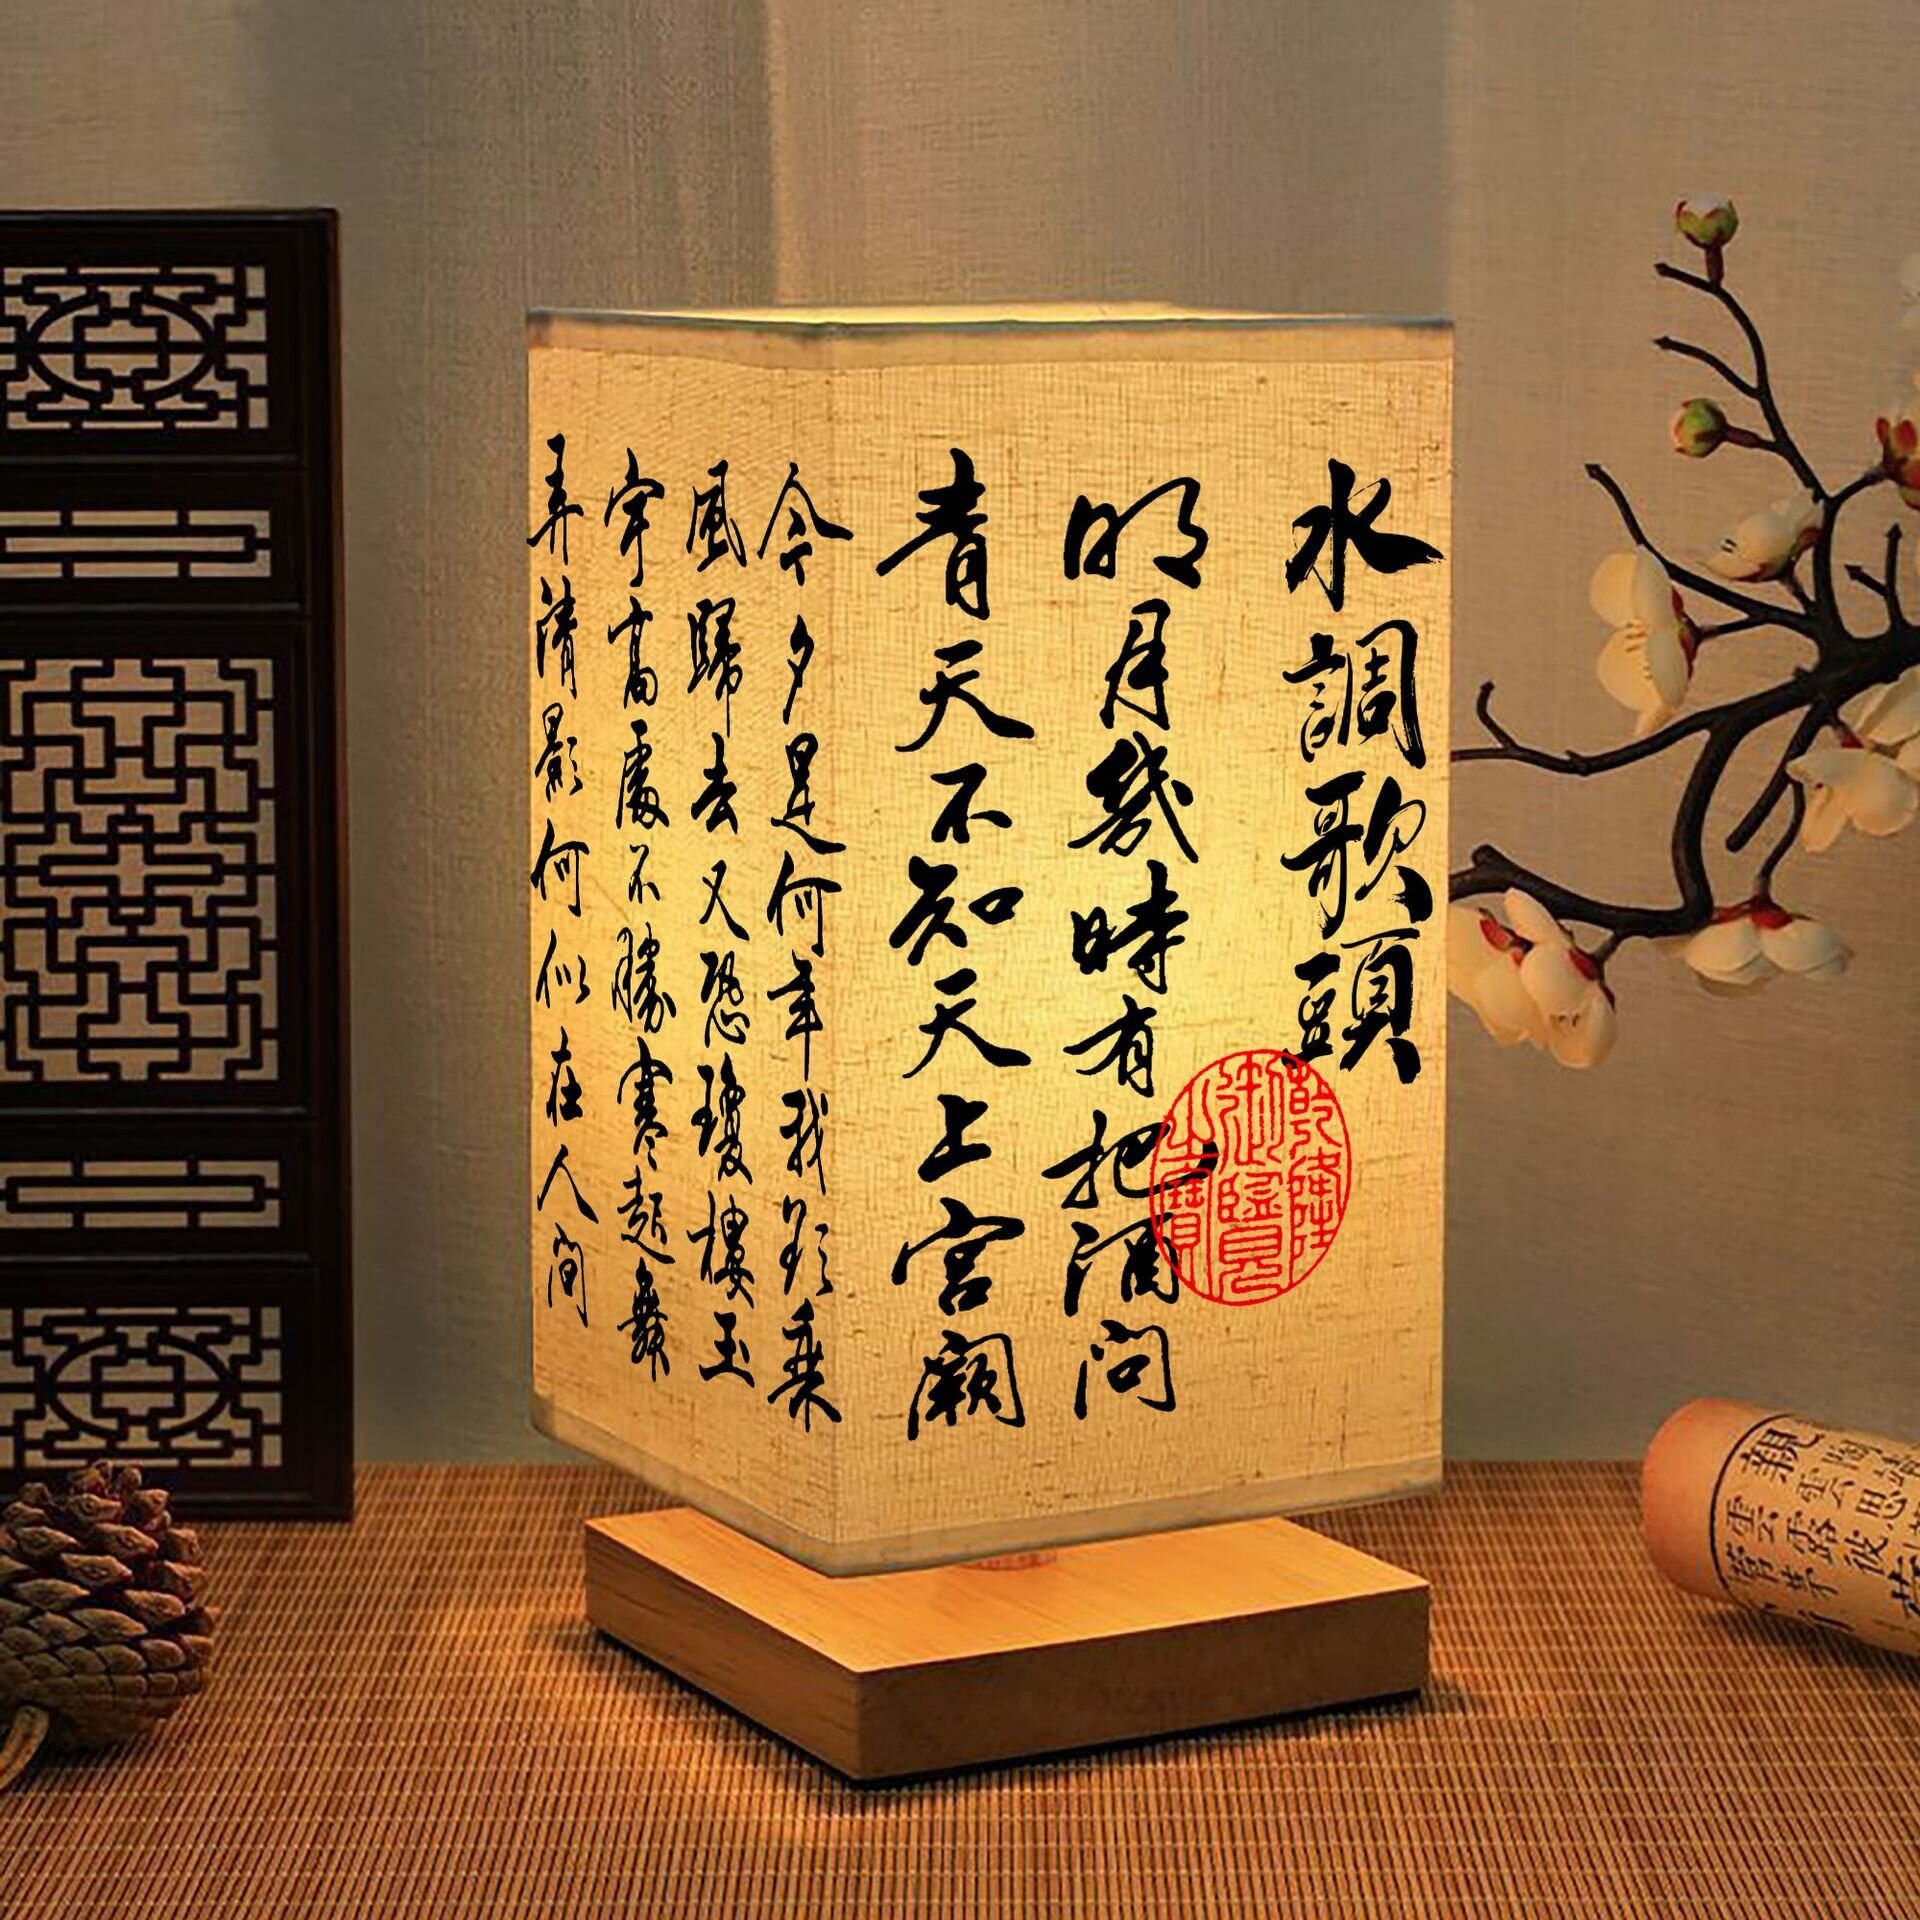 水調歌頭
明月幾時有把酒問
青天不知天上宮闕
今夕是何年我欲乘
風歸去又恐瓊樓玉
宇高處不勝寒起舞
弄清影何似在人間
乾隆
御覽
之寶